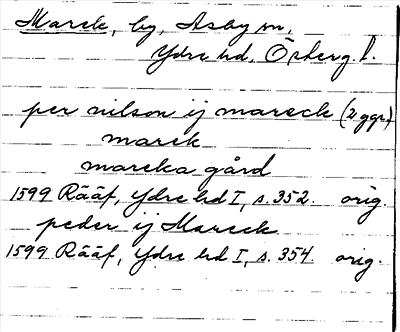 Marek, by, Asby sn,
Ydre hd, Österg. l.
per nilson ij mareck (2 ggr)
marek
mareka gård
1599 Rääf, Ydre hd I, s. 352. orig.
peder ij Mareck
1599 Rääf, Ydre hd I, s. 354. orig.